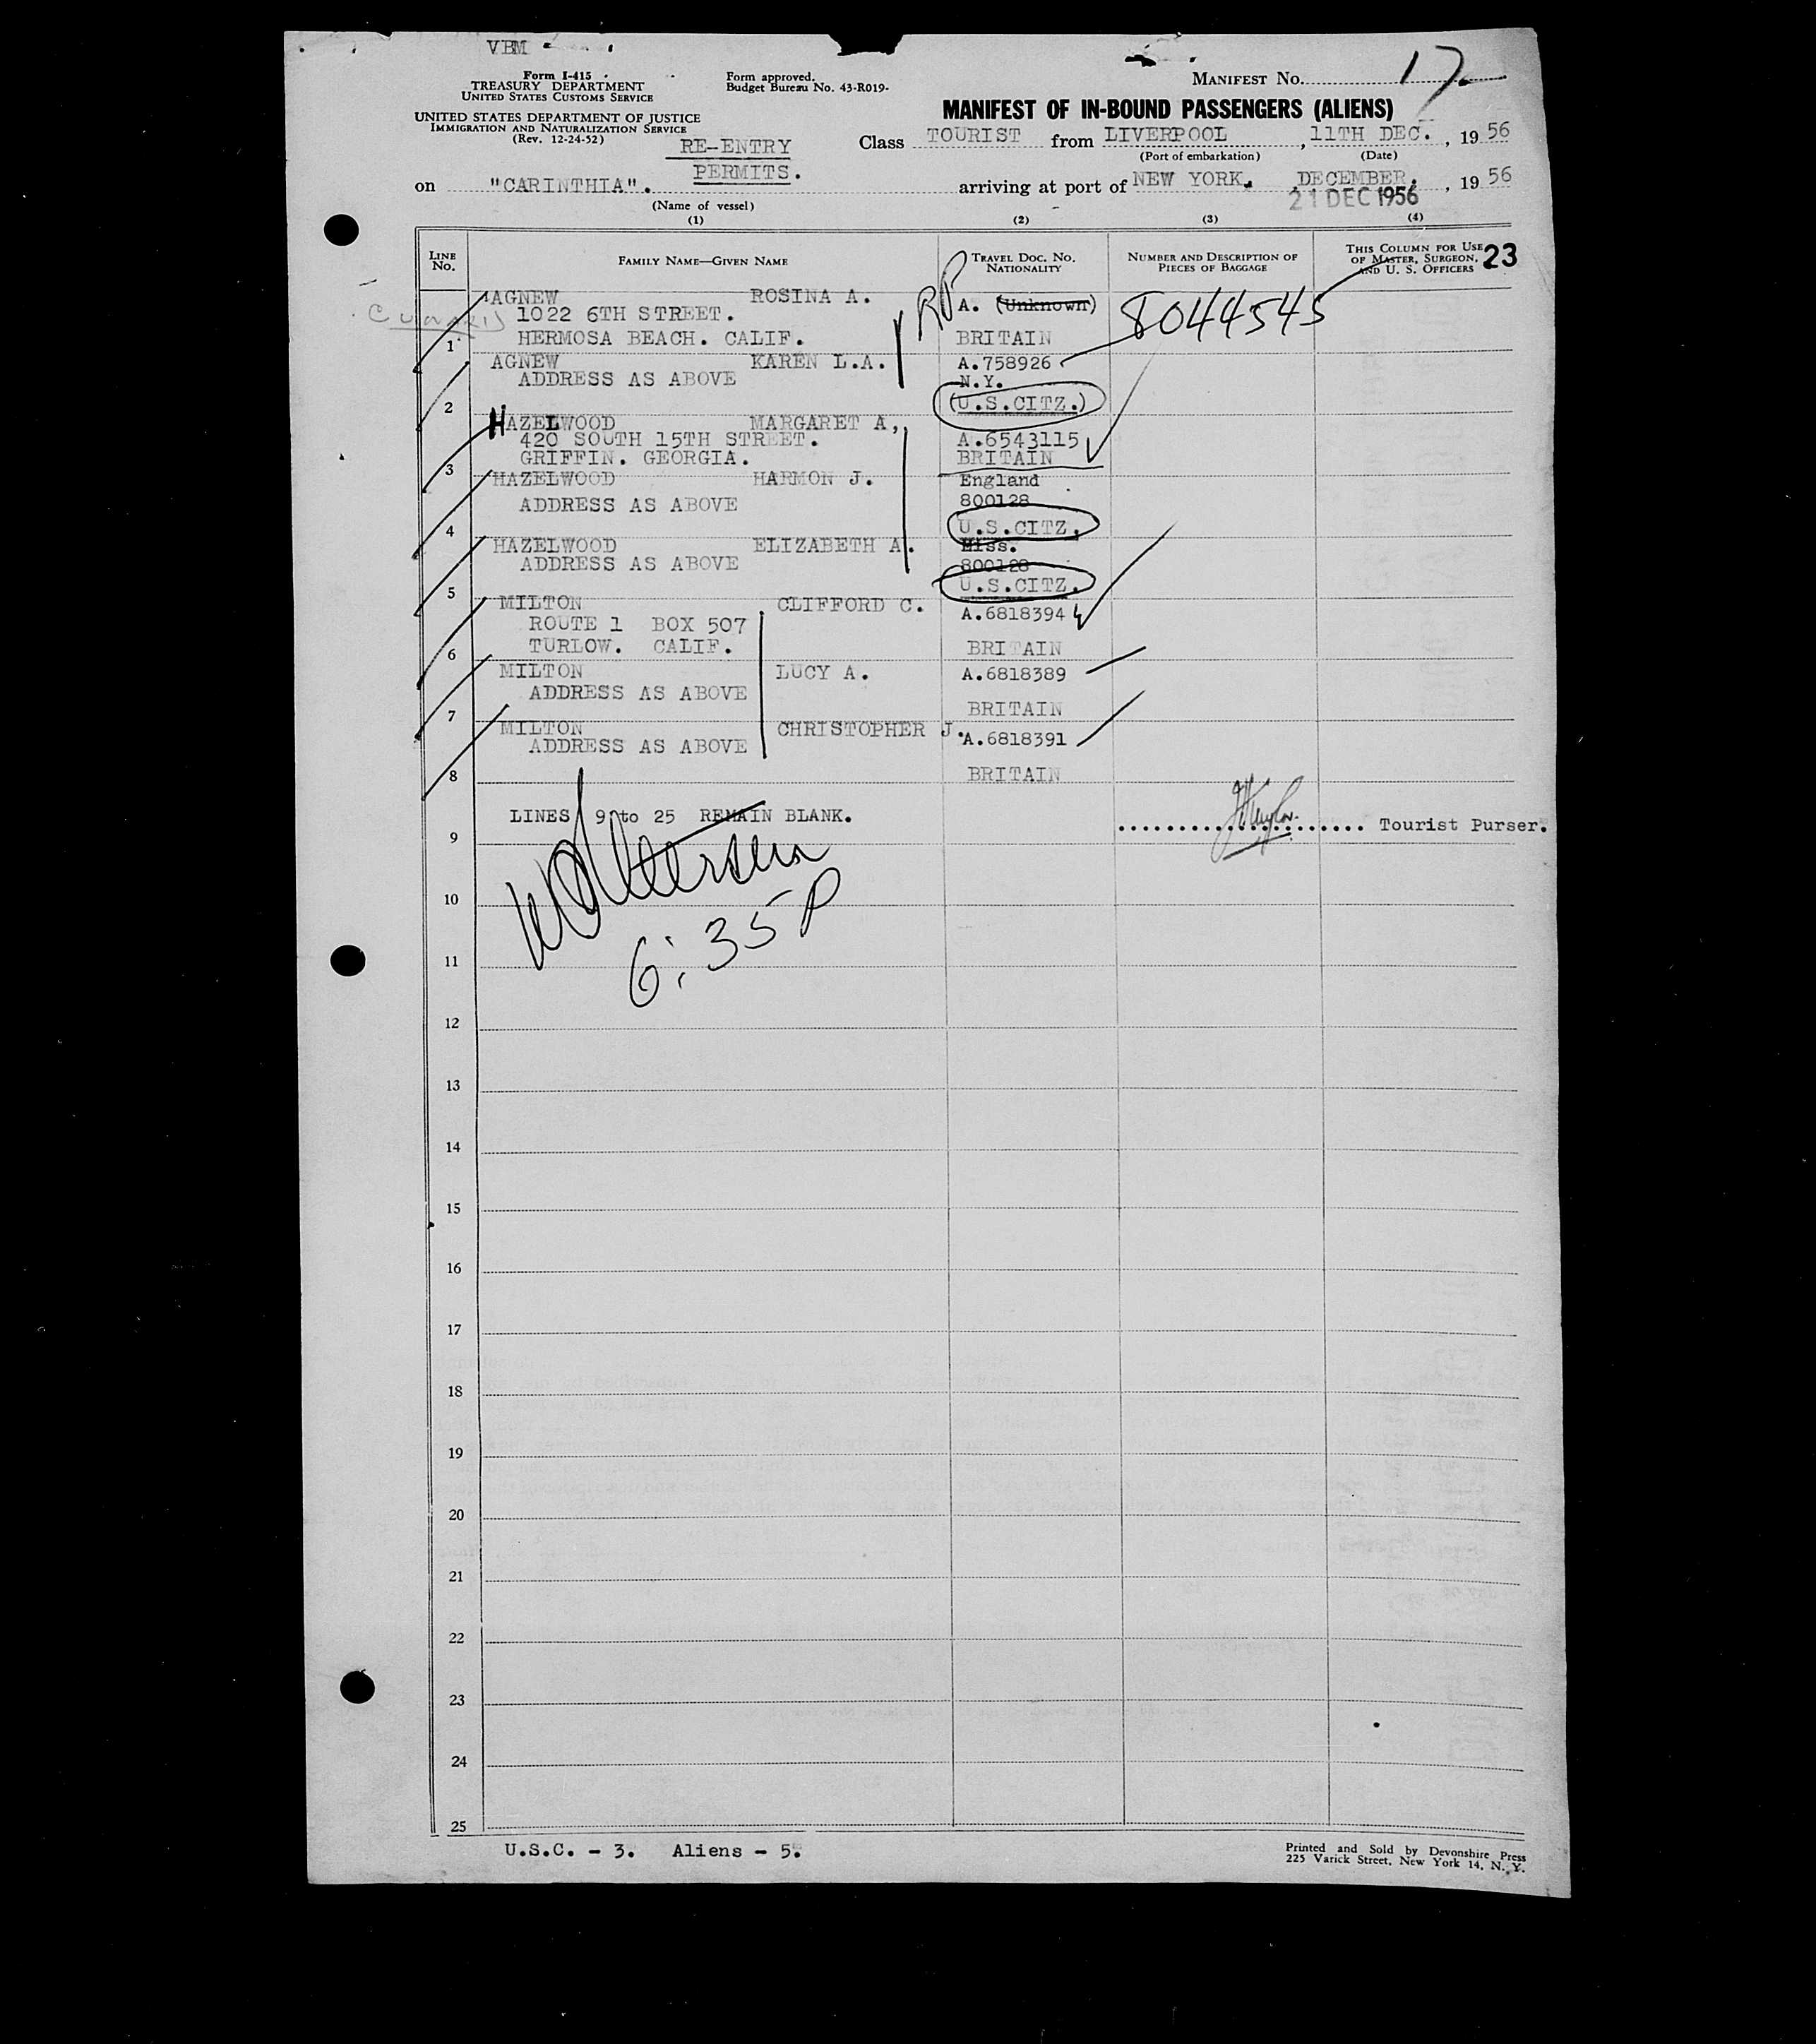 VBM
Form I-415
TREASURY DEPARTMENT
UNITED STATES CUSTOMS SERVICE
UNITED STATES DEPARTMENT OF JUSTICE
IMMIGRATION AND NATURALIZATION SERVICE
(Rev. 12-24-52)
Form approved.
Budget Bureau No. 43-R019-
MANIFEST NO. 17.
MANIFEST OF IN-BOUND PASSENGERS (ALIENS)
RE-ENTRY
PERMITS.
Class TOURIST from LIVERPOOL, 11TH DEC., 1956
(Port of embarkation) (Date)
on "CARINTHIA". arriving at port of NEW YORK. DECEMBER., 1956
21 DEC 1956
(Name of vessel)
(1) (2) (3) (4)
LINE No. FAMILY NAME—GIVEN NAME TRAVEL DOC. NO. NATIONALITY NUMBER AND DESCRIPTION OF PIECES OF BAGGAGE THIS COLUMN FOR USE OF MASTER, SURGEON, AND U. S. OFFICERS 23
AGNEW ROSINA A. RP A. (Unknown) 8044545
1022 6TH STREET.
1 HERMOSA BEACH. CALIF. BRITAIN
AGNEW KAREN L.A. A.758926
ADDRESS AS ABOVE N.Y.
2 (U.S.CITZ.)
HAZELWOOD MARGARET A,
420 SOUTH 15TH STREET. A.6543115
3 GRIFFIN. GEORGIA. BRITAIN
HAZELWOOD HARMON J. England
ADDRESS AS ABOVE 800128
4 U.S.CITZ.
HAZELWOOD ELIZABETH A. Miss.
ADDRESS AS ABOVE 800128
5 U.S.CITZ.
MILTON CLIFFORD C. A.6818394
ROUTE 1 BOX 507
6 TURLOW. CALIF. BRITAIN
MILTON LUCY A. A.6818389
ADDRESS AS ABOVE
7 BRITAIN
MILTON CHRISTOPHER J. A.6818391
ADDRESS AS ABOVE
8 BRITAIN
LINES 9 to 25 REMAIN BLANK.
.................... Tourist Purser.
9
10
6:35 P
11
12
13
14
15
16
17
18
19
20
21
22
23
24
25
U.S.C. - 3. Aliens - 5.
Printed and Sold by Devonshire Press
225 Varick Street, New York 14, N. Y.